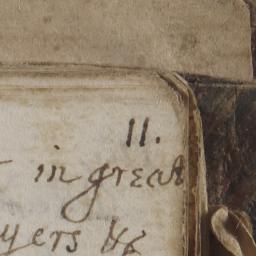 11.
in great
yers &